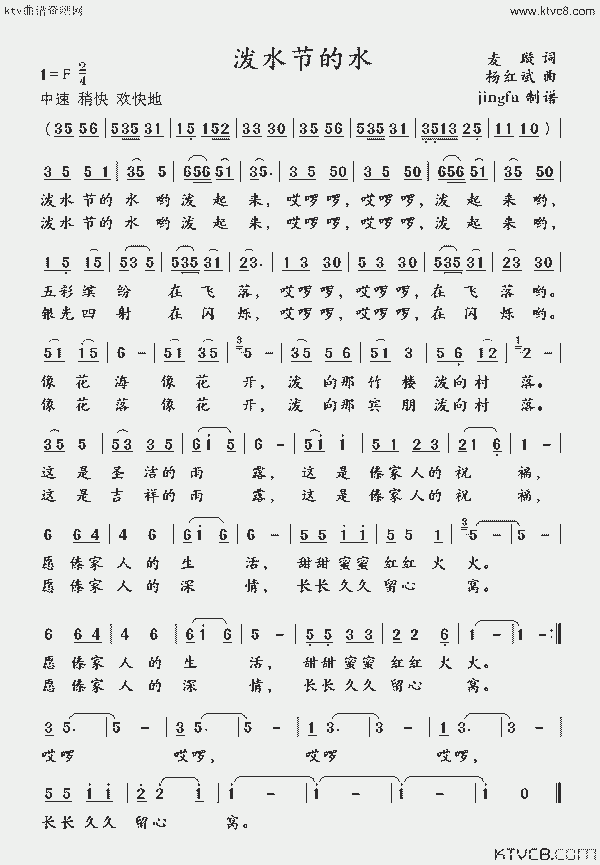 ktv曲谱资源网
www.ktvc8.com
泼水节的水
1=F 2/4
麦 词
杨红斌 曲
中速 稍快 欢快地
jingfu 制谱
(35 56 | 535 31 | 15 152 | 33 30 | 35 56 | 535 31 | 3513 25 | 11 10)|
3 5 5 1 | 35 5 | 656 51 | 35. | 3 5 50 | 3 5 50 | 656 51 | 35 30 |
泼水节的 水 哟 泼 起 来, 哎啰啰, 哎啰啰, 泼 起 来 哟,
泼水节的 水 哟 泼 起 来, 哎啰啰, 哎啰啰, 泼 起 来 哟,
1 5 15 | 53 5 | 535 31 | 23. | 1 3 30 | 1 3 30 | 535 31 | 23 30 |
五彩缤 纷 在 飞 落, 哎啰啰, 哎啰啰, 在 飞 落 哟。
银光四 射 在 闪 烁, 哎啰啰, 哎啰啰, 在 闪 烁 哟。
51 15 | 6 - | 51 35 | 3 5 - | 35 5 6 | 51 3 | 5 6 12 | 1 2 - |
像 花 海 像 花 开, 泼 向那 竹 楼 泼向 村 落。
像 花 落 像 花 开, 泼 向那 宾 朋 泼向 村 落。
35 5 | 53 35 | 6i 5 | 6 - | 51 i | 51 23 | 21 6 | 1 - |
这 是 圣 洁的 雨 露, 这 是 傣家人的 祝 福,
这 是 吉 祥的 雨 露, 这 是 傣家人的 祝 福,
6 64 | 4 6 | 6i 6 | 6 - | 55 ii | 55 1 | 3 5 - | 5 - |
愿 傣家 人 的 生 活, 甜甜 蜜蜜 红红 火 火。
愿 傣家 人 的 深 情, 长长 久久 留心 窝。
6 64 | 4 6 | 6i 6 | 5 - | 55 33 | 22 6 | 1 - | 1 - :||
愿 傣家 人 的 生 活, 甜甜 蜜蜜 红红 火 火。
愿 傣家 人 的 深 情, 长长 久久 留心 窝。
3 5. | 5 - | 3 5. | 5 - | 1 3. | 3 - | 1 3. | 3 - |
哎啰 哎啰, 哎啰 哎啰,
55 ii | 22 i | i - | i - | i - | i 0 ||
长长 久久 留心 窝。
KTVC8.com